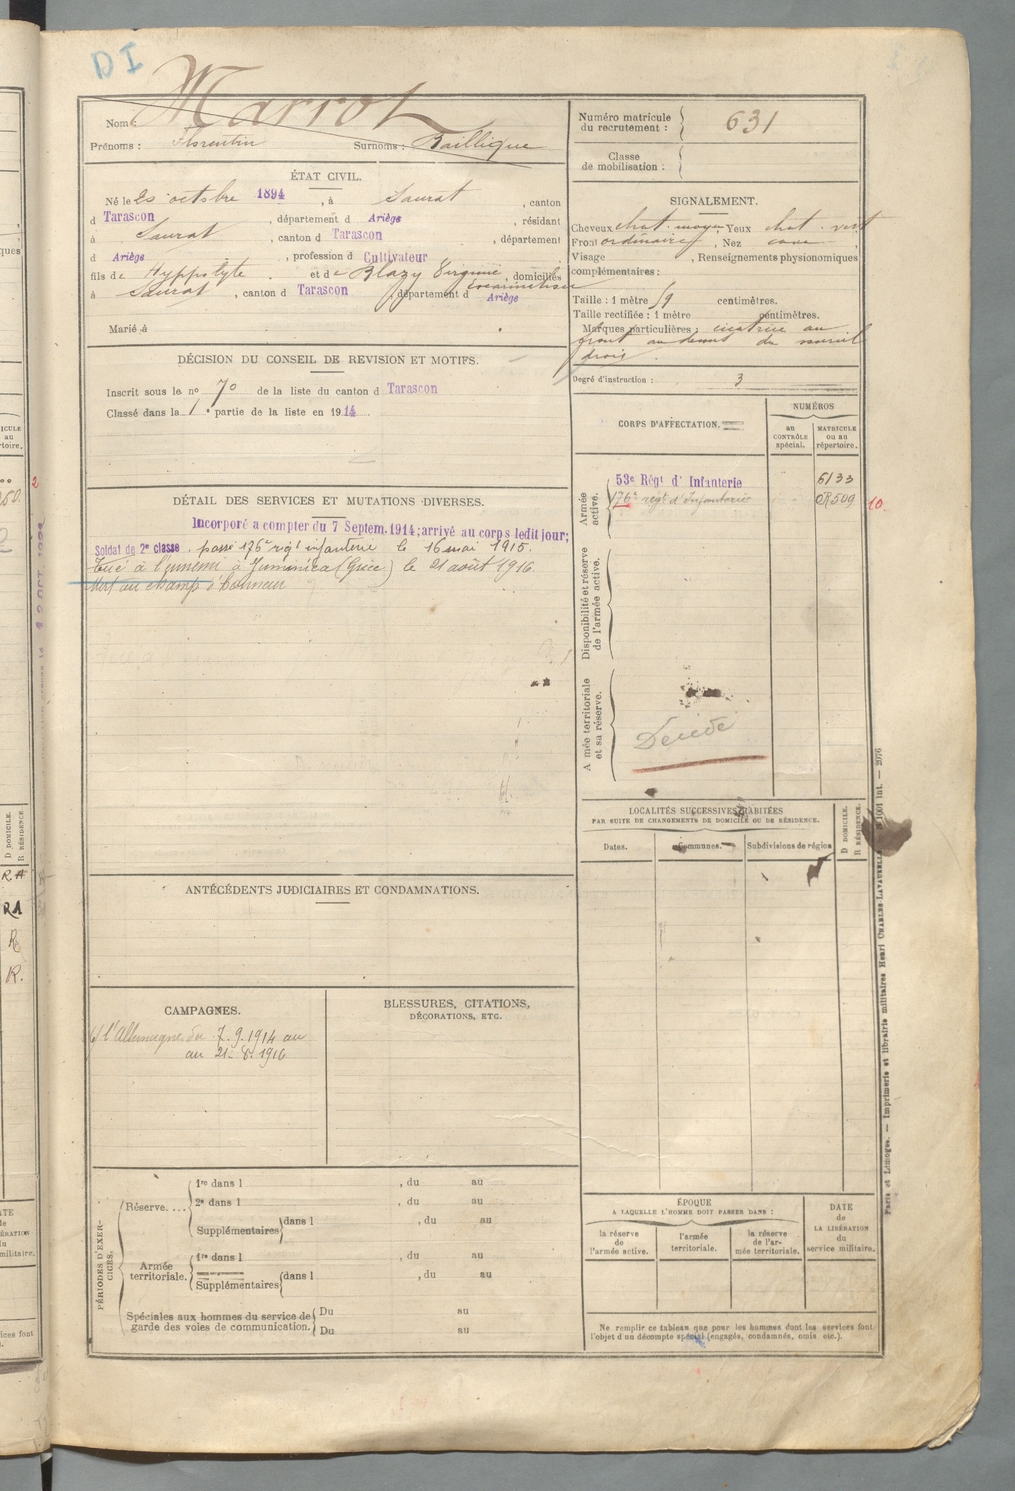 DI
Nom : Marrot
Prénoms : Florentin Surnoms : Baillique
Numéro matricule du recrutement : 631
Classe de mobilisation :
ÉTAT CIVIL.
Né le 20 octobre 1894, à Saurat, canton
d Tarascon, département d Ariège, résidant
à Saurat, canton d Tarascon, département
d Ariège, profession d Cultivateur
fils de Hyppolyte et de Blazy Virginie, domiciliés
à Saurat, canton d Tarascon, département d Ariège
Marié à
SIGNALEMENT.
Cheveux chat. moyen Yeux chat. vert
Front ordinaire, Nez cave
Visage , Renseignements physionomiques
complémentaires :
Taille : 1 mètre 59 centimètres.
Taille rectifiée : 1 mètre centimètres.
Marques particulières : cicatrice au
front au dessus du sourcil
droit.
Degré d'instruction : 3
DÉCISION DU CONSEIL DE REVISION ET MOTIFS.
Inscrit sous le no 70 de la liste du canton d Tarascon
Classé dans la 1e partie de la liste en 1914
CORPS D'AFFECTATION.
NUMÉROS
au CONTRÔLE spécial.
MATRICULE ou au répertoire.
Armée active.
53e Régt d' Infanterie 6133
176e régt d'Infanterie 509
10.
Disponibilité et réserve de l'armée active.
Armée territoriale et sa réserve.
Décédé
DÉTAIL DES SERVICES ET MUTATIONS DIVERSES.
Incorporé a compter du 7 Septem. 1914; arrivé au corps ledit jour;
Soldat de 2e classe. passé 176e rigt infanterie le 16 mai 1915.
Tué à l'ennemi à Juminica (Grèce) le 21 août 1916
Mort au champ d'honneur
LOCALITÉS SUCCESSIVES HABITÉES
PAR SUITE DE CHANGEMENTS DE DOMICILE OU DE RÉSIDENCE.
Dates. Communes. Subdivisions de région
D DOMICILE.
R RÉSIDENCE.
ANTÉCÉDENTS JUDICIAIRES ET CONDAMNATIONS.
CAMPAGNES.
l'Allemagne du 7.9.1914 au
au 21.8.1916
BLESSURES, CITATIONS,
DÉCORATIONS, ETC.
PÉRIODES D'EXERCICES.
Réserve....
1re dans l , du au
2e dans l , du au
Supplémentaires dans l , du au
Armée territoriale.
1re dans l , du au
Supplémentaires dans l , du au
Spéciales aux hommes du service de
garde des voies de communication.
Du au
Du au
ÉPOQUE
A LAQUELLE L'HOMME DOIT PASSER DANS :
la réserve de l'armée active.
l'armée territoriale.
la réserve de l'armée territoriale.
DATE de LA LIBÉRATION du service militaire.
Ne remplir ce tableau que pour les hommes dont les services font
l'objet d'un décompte spécial (engagés, condamnés, omis etc.).
Paris et Limoges. — Imprimerie et librairie militaires Henri CHARLES-LAVAUZELLE